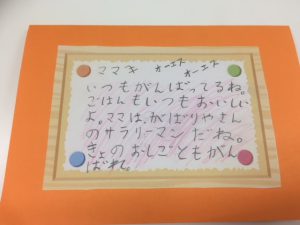 ママ 　オーエス　オーエス
いつもがんばってるね。
ごはんもいつもおいしい
よ。ママは、がばりやさん
のサラリーマンだね。
きょのおしごともがん
ばれ。